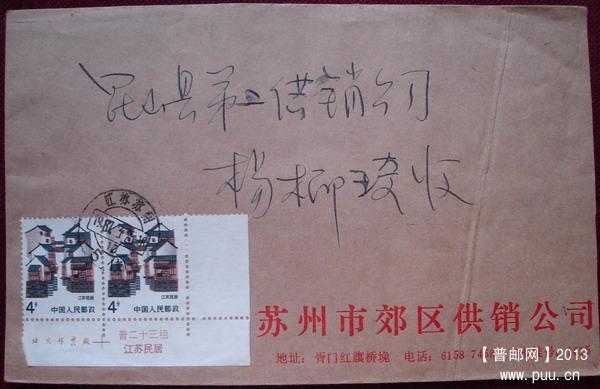 昆山县第二供销公司
杨柳琼收
江苏苏州
江苏民居
江苏民居
4分
中国人民邮政
4分
中国人民邮政
北京邮票厂
普二十三组
江苏民居
苏州市郊区供销公司
地址：胥门红旗桥堍 电话：6158
【普邮网】2013
www.puu.cn